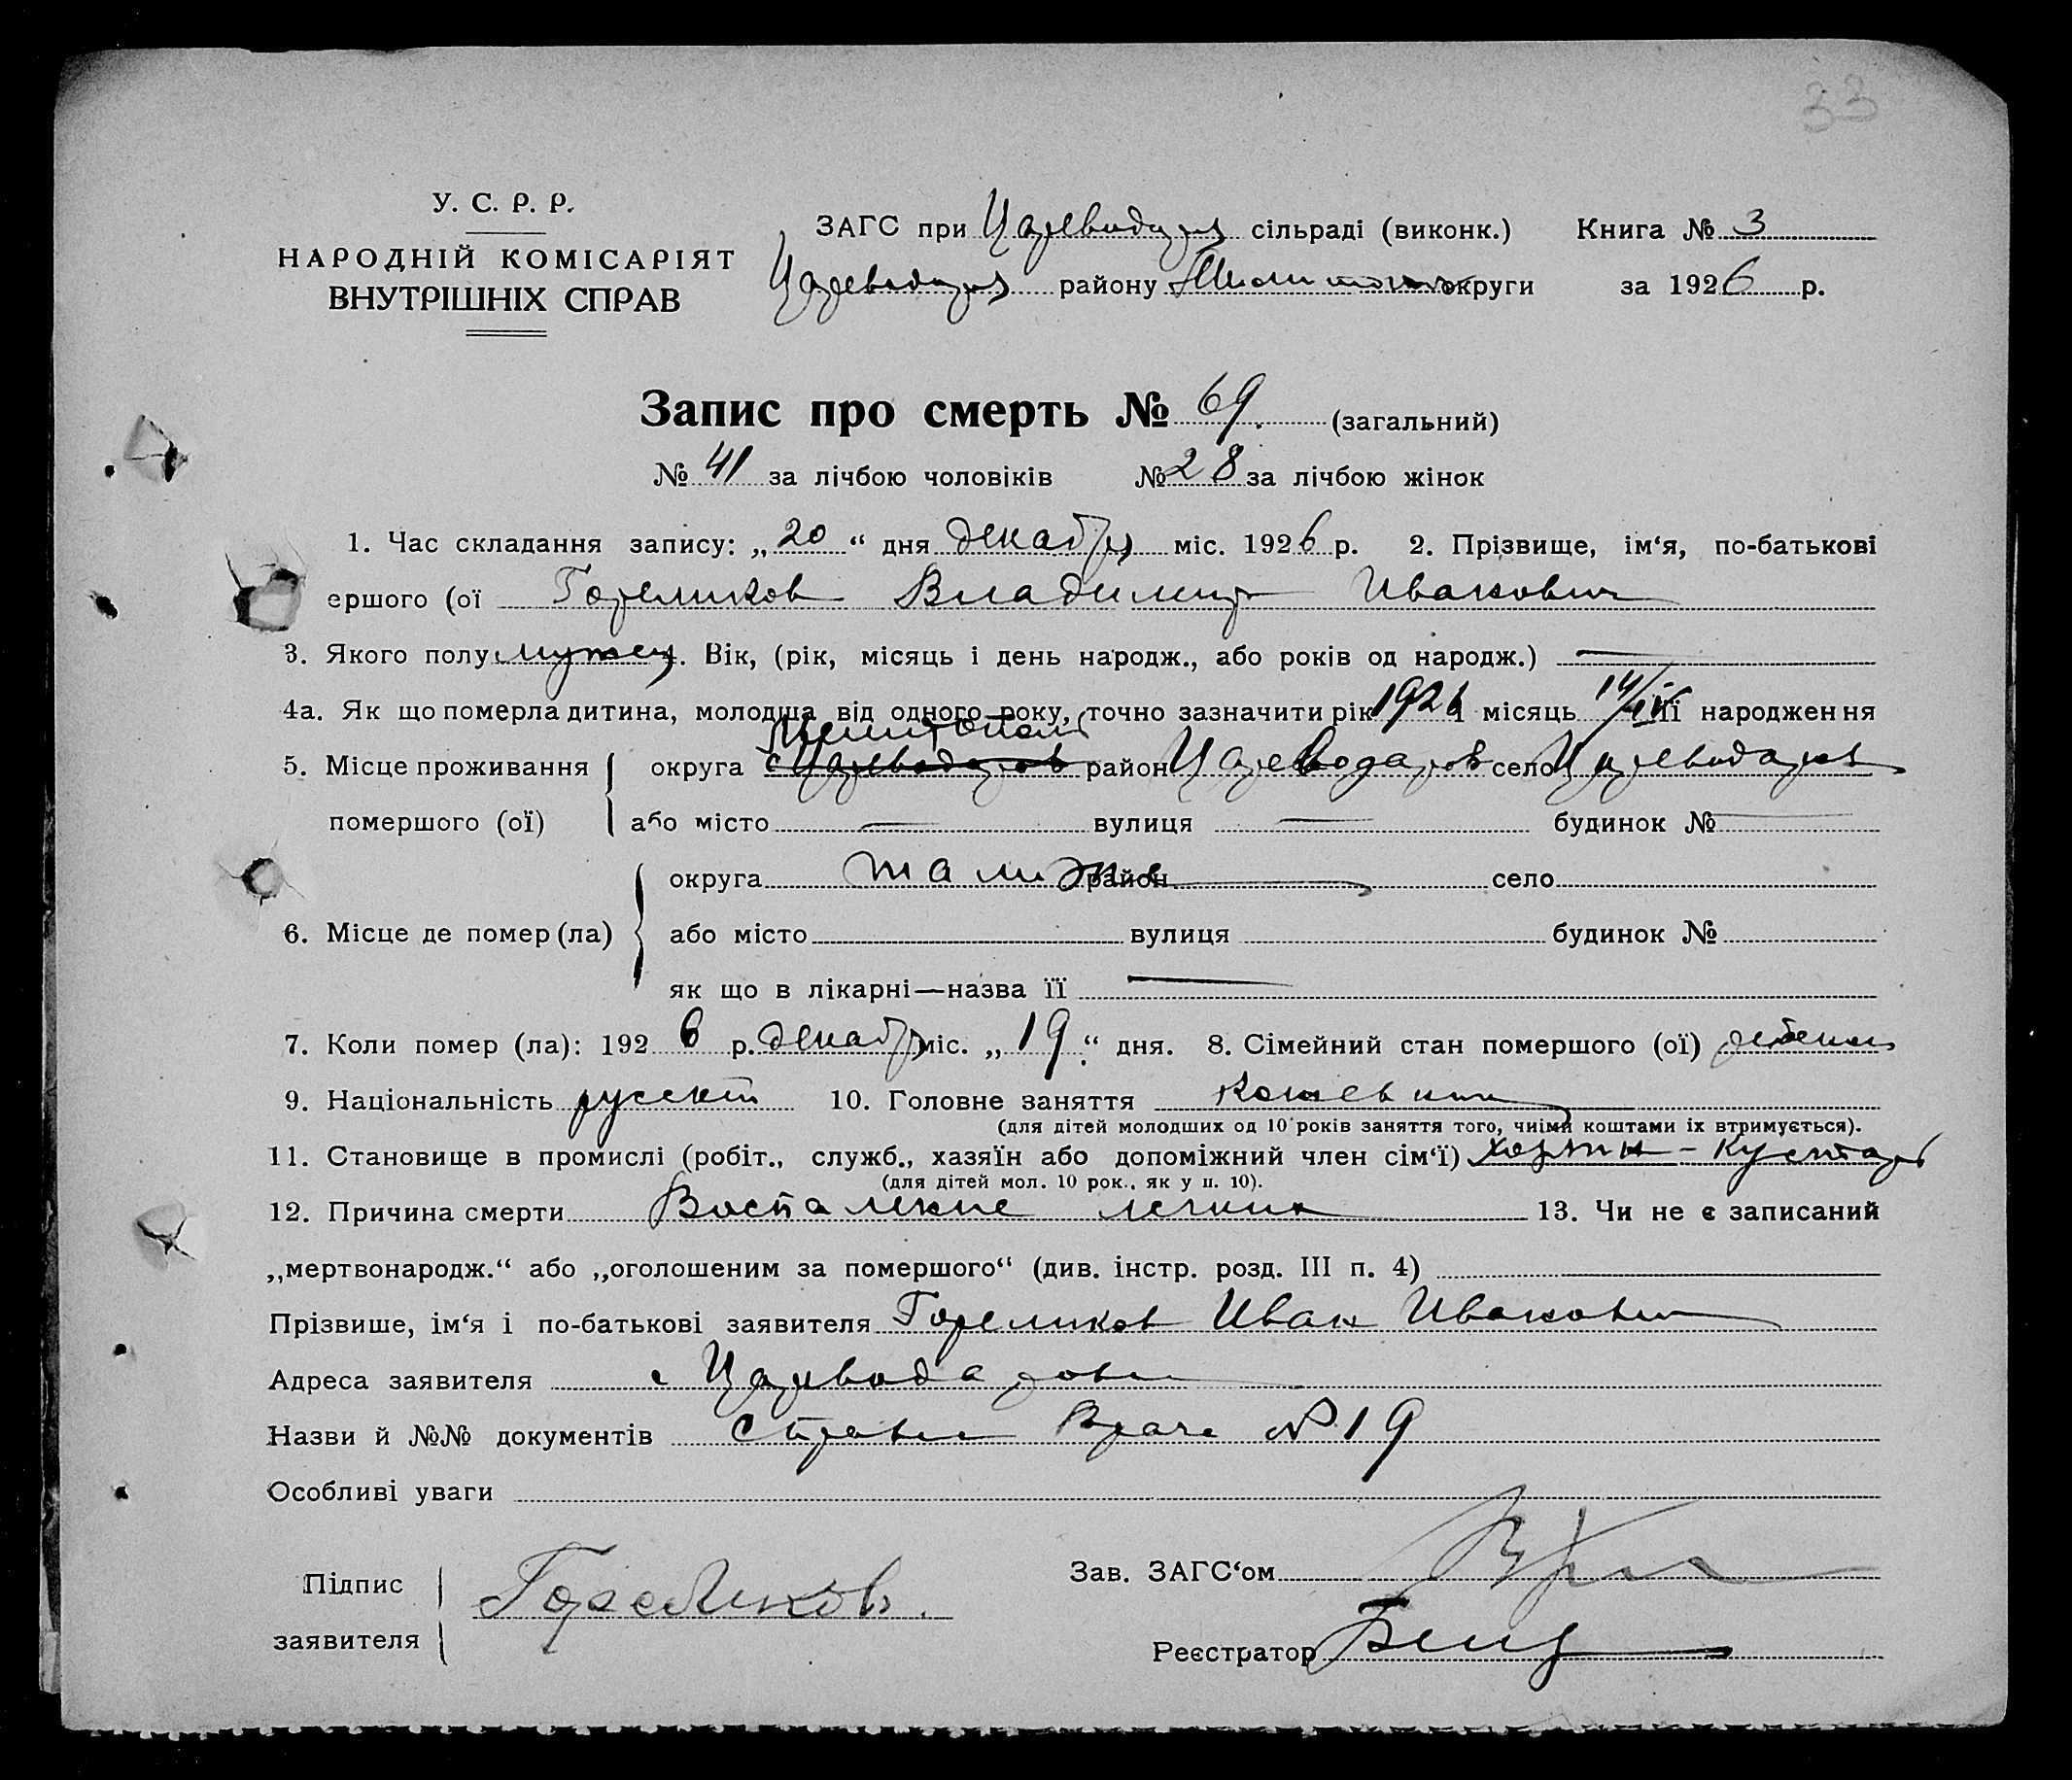 33
У. С. Р. Р.
НАРОДНІЙ КОМІСАРІЯТ
ВНУТРІШНІХ СПРАВ
ЗАГС при сільраді (виконк.) Книга № 3
району округи за 1926 р.
Запис про смерть № 69. (загальний)
№ 41 за лічбою чоловіків № 28 за лічбою жінок
1. Час складання запису: „20“ дня декабря міс. 1926 р. 2. Прізвище, ім‘я, по-батькові
ершого (ої Гореликов Владимир Иванович
3. Якого полу . Вік, (рік, місяць і день народж., або років од народж.) —
4а. Як що померла дитина, молодша від одного року, точно зазначити рік 1926 місяць її народження
5. Місце проживання округа район село
помершого (ої) або місто — вулиця — будинок № —
округа там же район село
6. Місце де помер (ла) або місто вулиця будинок №
як що в лікарні—назва її —
7. Коли помер (ла): 1926 р. декабр міс. „19“ дня. 8. Сімейний стан помершого (ої)
9. Національність русский 10. Головне заняття
(для дітей молодших од 10 років заняття того, чиїми коштами їх втримується).
11. Становище в промислі (робіт., служб., хазяїн або допоміжний член сім‘ї) хозяин - Кустарь
(для дітей мол. 10 рок., як у п. 10).
12. Причина смерти 13. Чи не є записаний
„мертвонародж.“ або „оголошеним за помершого“ (див. інстр. розд. III п. 4)
Прізвише, ім‘я і по-батькові заявителя Гореликов Иван Иванович
Адреса заявителя с
Назви й №№ документів Врача № 19
Особливі уваги
Підпис Гореликов. Зав. ЗАГС‘ом
заявителя Реєстратор